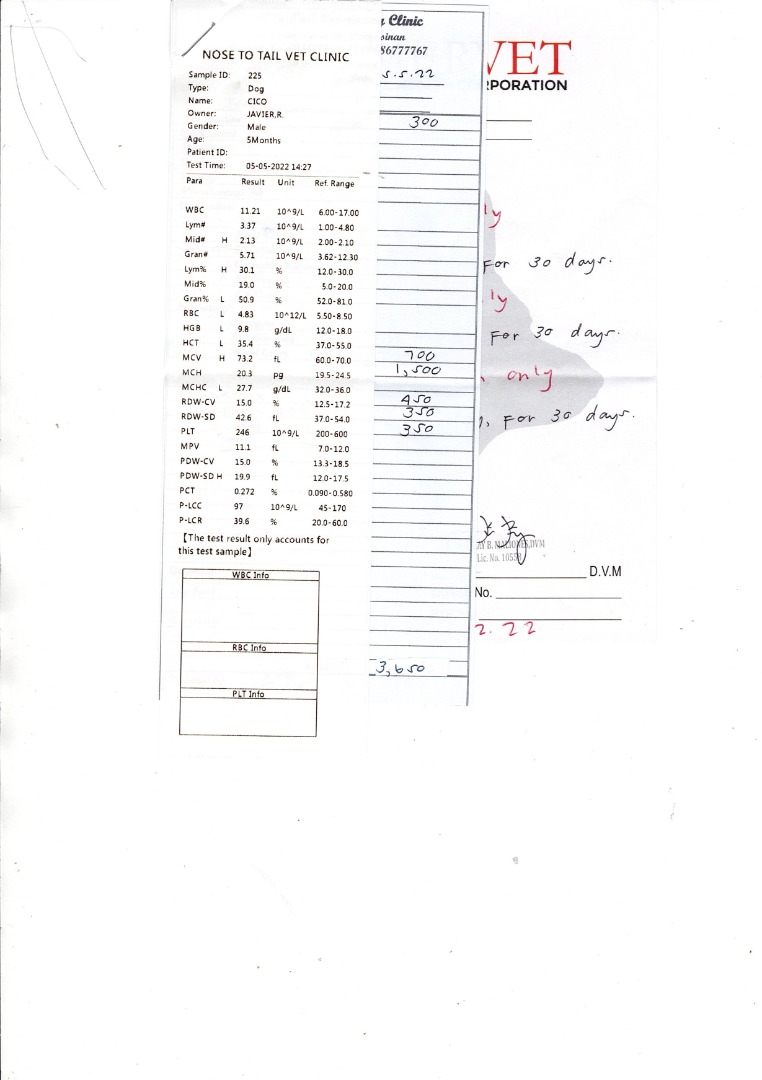 NOSE TO TAIL VET CLINIC
Sample ID: 225
Type: Dog
Name: CICO
Owner: JAVIER,R.
Gender: Male
Age: 5Months
Patient ID:
Test Time: 05-05-2022 14:27
Para Result Unit Ref. Range
WBC 11.21 10^9/L 6.00-17.00
Lym# 3.37 10^9/L 1.00-4.80
Mid# H 2.13 10^9/L 2.00-2.10
Gran# 5.71 10^9/L 3.62-12.30
Lym% H 30.1 % 12.0-30.0
Mid% 19.0 % 5.0-20.0
Gran% L 50.9 % 52.0-81.0
RBC L 4.83 10^12/L 5.50-8.50
HGB L 9.8 g/dL 12.0-18.0
HCT L 35.4 % 37.0-55.0
MCV H 73.2 fL 60.0-70.0
MCH 20.3 pg 19.5-24.5
MCHC L 27.7 g/dL 32.0-36.0
RDW-CV 15.0 % 12.5-17.2
RDW-SD 42.6 fL 37.0-54.0
PLT 246 10^9/L 200-600
MPV 11.1 fL 7.0-12.0
PDW-CV 15.0 % 13.3-18.5
PDW-SD H 19.9 fL 12.0-17.5
PCT 0.272 % 0.090-0.580
P-LCC 97 10^9/L 45-170
P-LCR 39.6 % 20.0-60.0
【The test result only accounts for
this test sample】
WBC Info
RBC Info
PLT Info
Clinic
sinan
86777767
5.5.22
300
700
1,500
450
350
350
3,650
VET
PORATION
ly
For 30 days.
ly
For 30 days.
only
, For 30 days.
Lic. No. 10558
D.V.M
No.
2.22